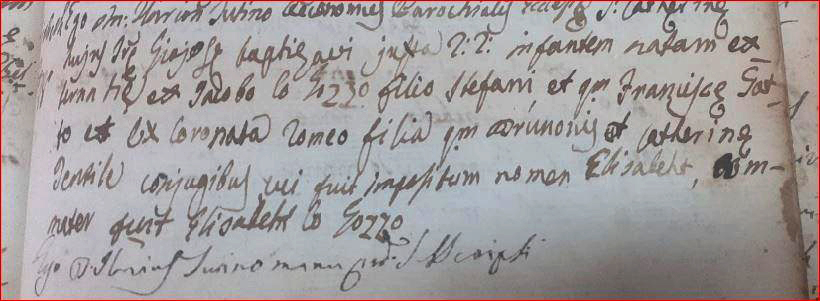 Ego D. Horius Surino Œconomus Parochialis Ecclesię S. Catherinę
hujus Trę Giojose baptizavi juxta R: R: infantem natam ex
ex Jacobo lo Gozzo filio Stefani, et qm Franciscę Gat-
to et ex Coronata Romeo filia qm Brunonis et Catherinę
Gentile conjugibus cui fuit impositum nomen Elisabeht, Com-
mater fuit Elisabeht lo Gozzo
Ego D. Horius Surino manu pp.a SSbcripsi